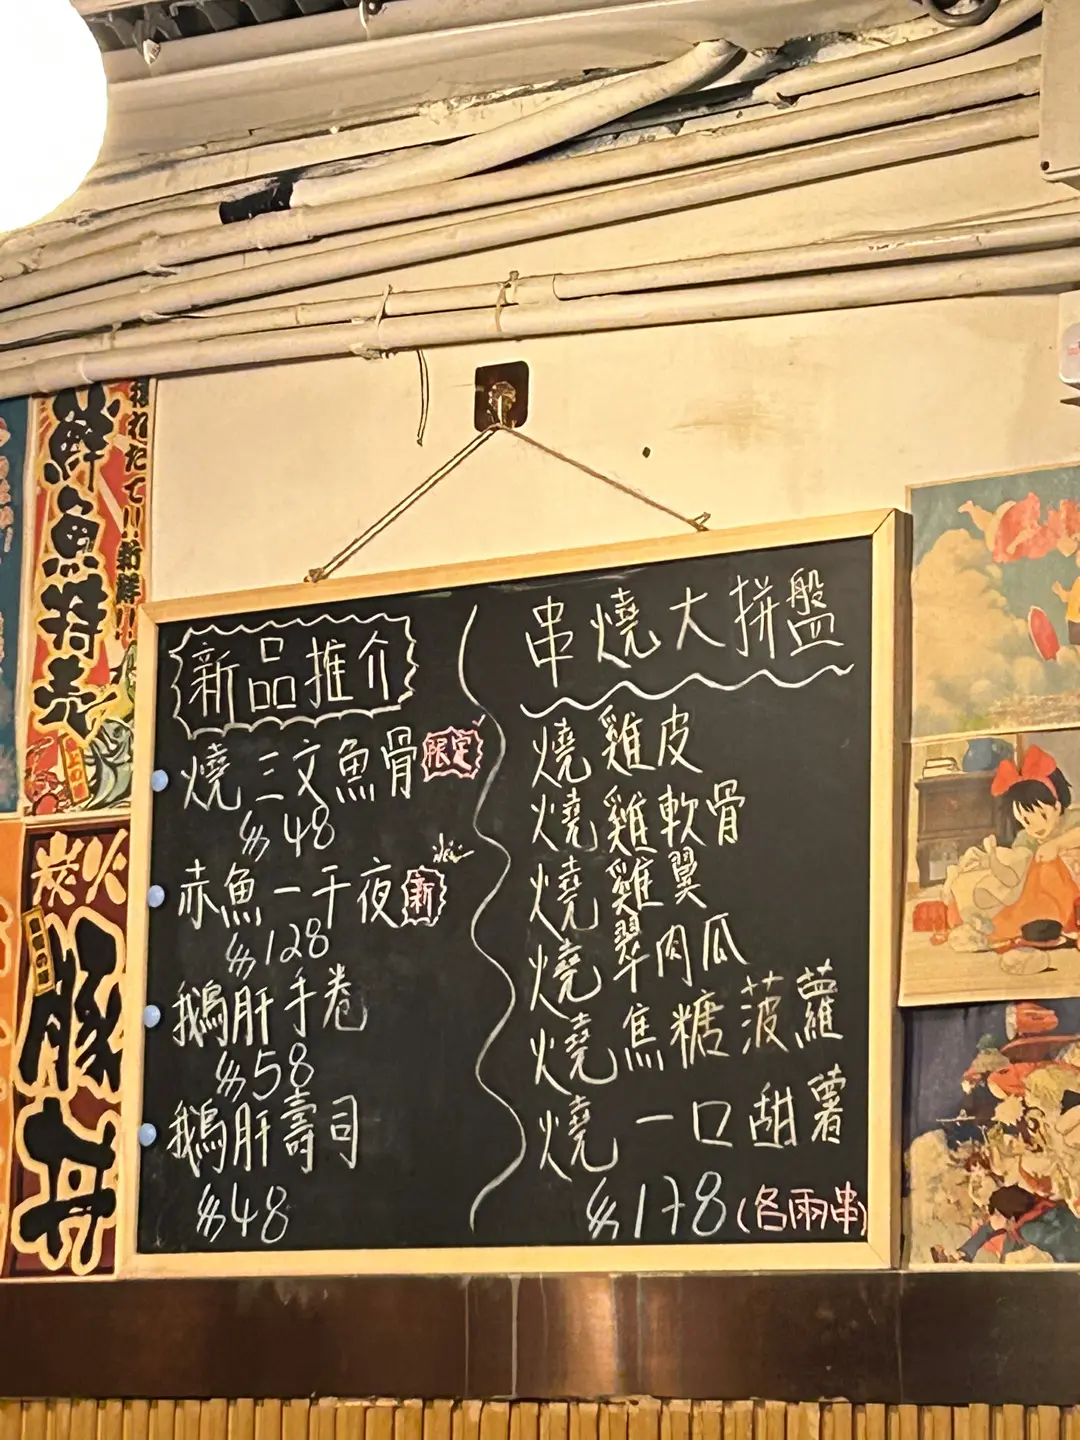 獲れたて!!新鮮!!
鮮魚特売
炭火
豚丼
新品推介
燒三文魚骨 限定
$48
赤魚一干夜 新 New
$128
鵝肝手卷
$58
鵝肝壽司
$48
串燒大拼盤
燒雞皮
燒雞軟骨
燒雞翼
燒翠肉瓜
燒焦糖菠蘿
燒一口甜薯
$178(各兩串)